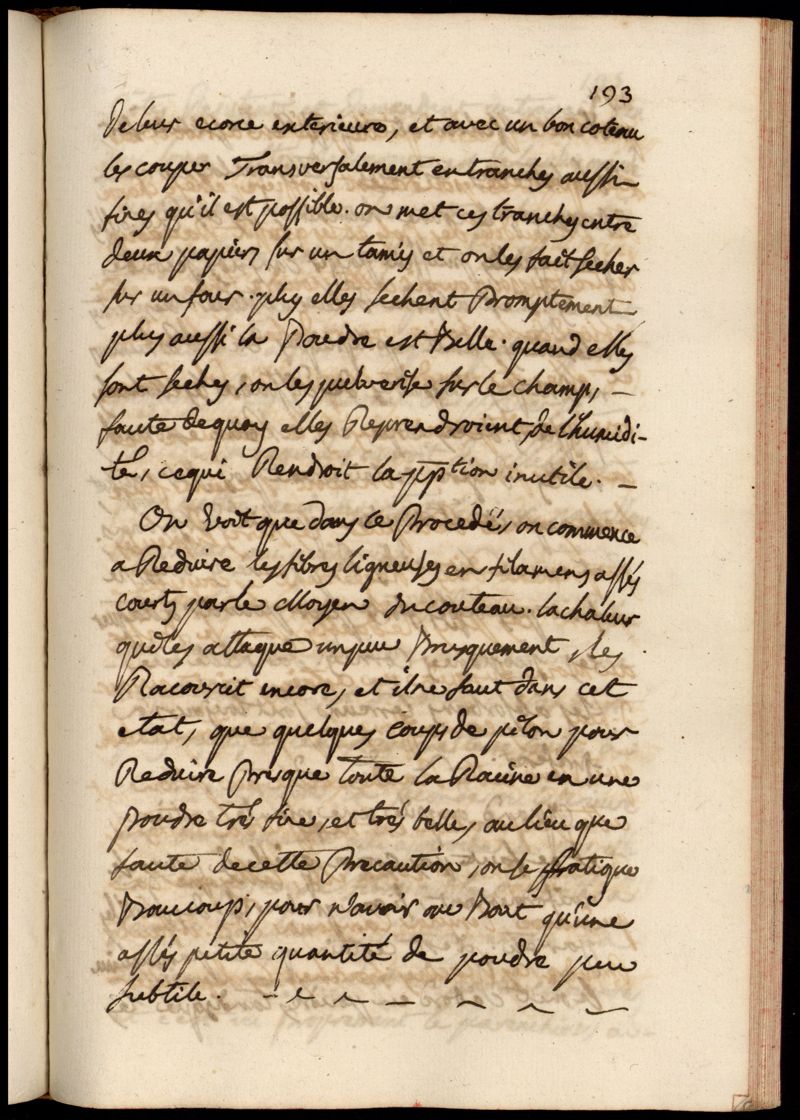 193
de leur ecorce exterieure, et avec un bon coteau
les couper Transversalement en tranches aussi
fines qu'il est possible. on met ces tranches entre
deux papiers sur un tamis et on les fait secher
sur un four. plus elles sechent Promptement
plus aussi la Poudre est Belle. quand elles
sont seches, on les pulverise sur le champ, —
faute de quoy elles Reprendroient de l'humidi-
té, ce qui Rendroit la pption inutile. —
On Voit que dans ce Procedé, on commence
a Reduire les fibres ligneuses en filamens assés
courts par le Moyen du couteau. la chaleur
qui les attaque un peu Brusquement, les
Racourcit encore, et il ne faut dans cet
etat, que quelques coups de pilon pour
Reduire Presque toute la Racine en une
poudre trés fine, et trés belle, au lieu que
faute de cette Precaution, on se fatigue
Beaucoup, pour n'avoir au Bout qu'une
assés petite quantité de poudre peu
subtile.